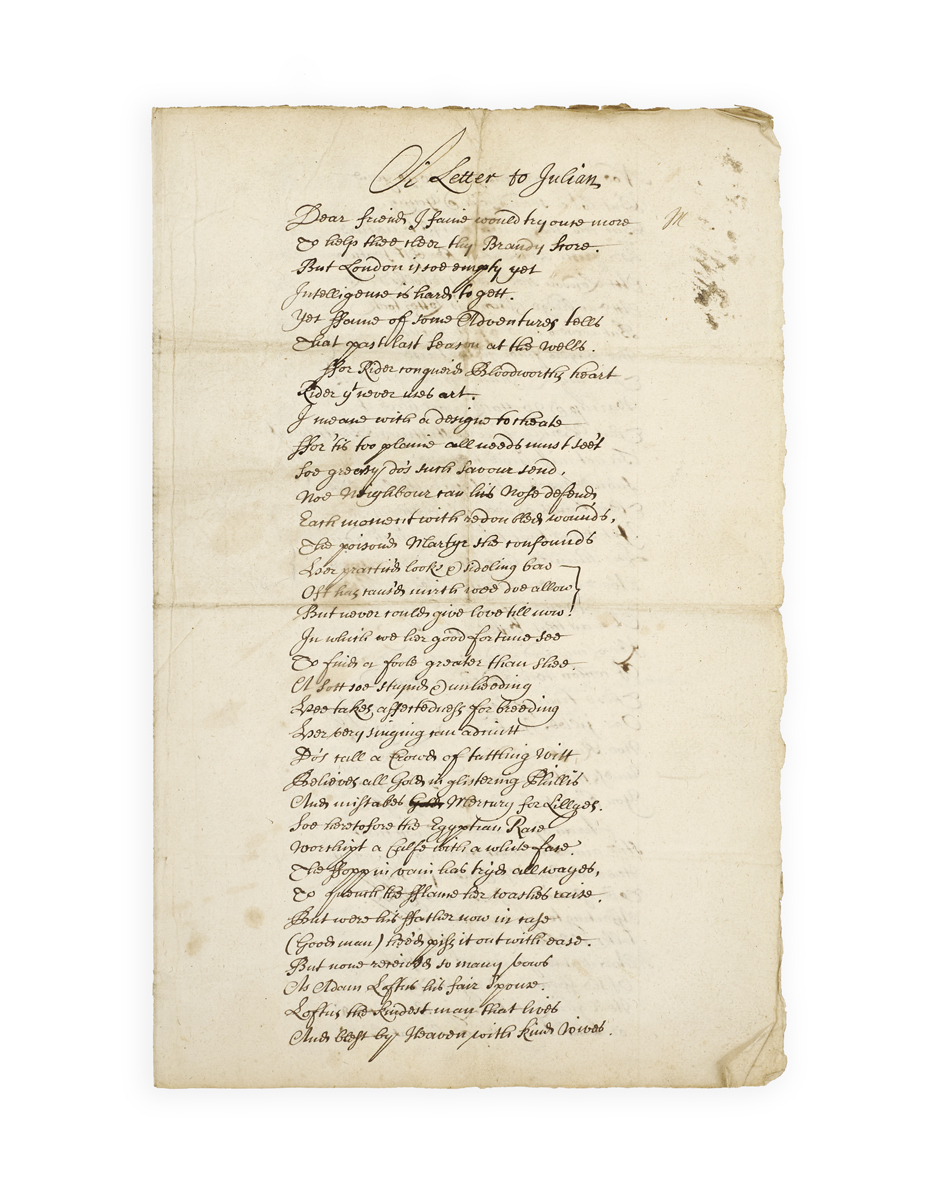 A Letter to Julian
Dear friend, I faine would try once more
To help thee cleer thy Brandy score.
But London is soe empty yet
Intelligence is hard to gett.
Yet ffame of some Adventures tells
That past last season at the Wells.
ffor Rider conquerd Bloodworths heart
Rider yt never uses art.
I meane with a designe to cheate
ffor 'tis too plaine all needs must see't
Soe greasy do's such savour send,
Noe Neighbour can his Nose defend
Each moment with redoubled wounds,
The poison'd Martyr she confounds
Her practic'd looks & sideling bow
Oft has caus'd mirth wee doe allow
But never could give love till now!
In which we her good fortune see
To find a foole greater than shee.
A Sott soe stupid & unheeding
Hee takes affectedness for breeding
Her very singing can admitt
Do's call a Crowd of tattling Witt
Believes all Gold in glistering Phillis
And mistakes Mercury for Lillyes.
Soe heretofore the Egyptian Race
Worshipt a Calfe with a white face.
The ffopp in vain has try'd all wayes,
To quench the fflame her washes raise.
But were his ffather now in case
(Good man) hee'd piss it out with ease.
But none received so many vows
As Adam Loftus his fair Spouse.
Loftus the kindest man that lives
And blest by Heaven with kind Wives.
M